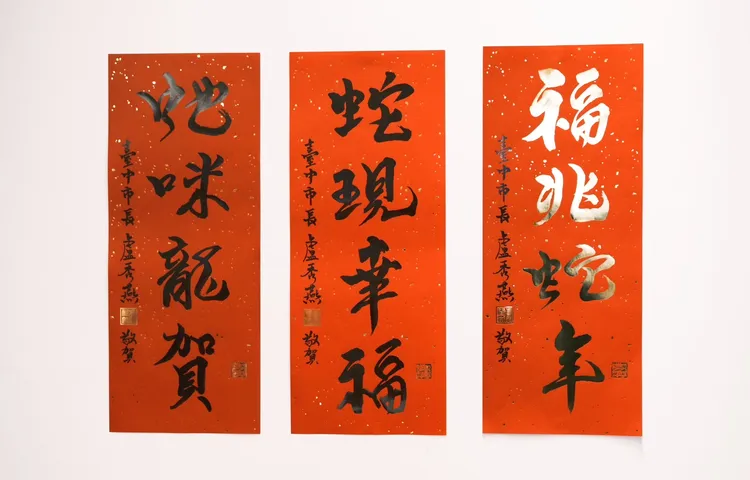 虵咪龍賀
臺中市長盧秀燕
敬賀
蛇現幸福
臺中市長盧秀燕
敬賀
福兆蛇年
臺中市長盧秀燕
敬賀